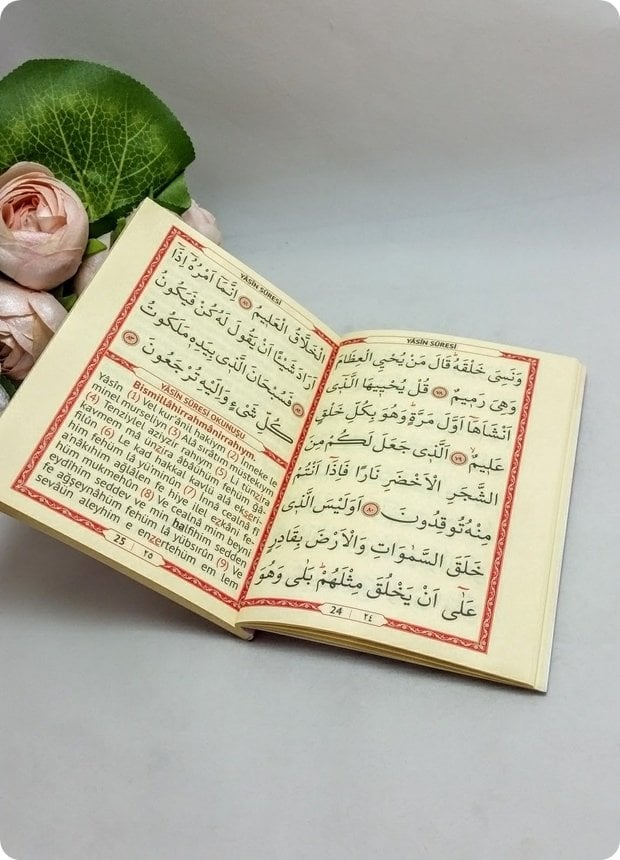 YÂSÎN SÛRESİ
وَنَسِىَ خَلْقَهُۜ قَالَ مَنْ يُحْيِى الْعِظَامَ
وَهِىَ رَمِيمٌ ﴿٧٨﴾ قُلْ يُحْيِيهَا الَّذٖى
اَنْشَاَهَا اَوَّلَ مَرَّةٍ وَهُوَ بِكُلِّ خَلْقٍ
عَلِيمٌ ﴿٧٩﴾ اَلَّذٖى جَعَلَ لَكُمْ مِنَ
الشَّجَرِ الْاَخْضَرِ نَارًا فَاِذَٓا اَنْتُمْ
مِنْهُ تُوقِدُونَ ﴿٨٠﴾ اَوَلَيْسَ الَّذٖى
خَلَقَ السَّمٰوَاتِ وَالْاَرْضَ بِقَادِرٍ
عَلٰٓى اَنْ يَخْلُقَ مِثْلَهُمْ بَلٰى وَهُوَ
24 | ٢٤
YÂSÎN SÛRESİ
الْخَلَّاقُ الْعَلِيمُ ﴿٨١﴾ اِنَّمَٓا اَمْرُهُٓ اِذَٓا
اَرَادَ شَيْئًا اَنْ يَقُولَ لَهُ كُنْ فَيَكُونُ
﴿٨٢﴾ فَسُبْحَانَ الَّذٖى بِيَدِهٖ مَلَكُوتُ
كُلِّ شَىْءٍ وَاِلَيْهِ تُرْجَعُونَ ﴿٨٣﴾
YÂSÎN SÛRESİ OKUNUŞU
Bismillâhirrahmânirrahıym.
Yâsîn (1) Vel kur'ânil hakiym (2) İnneke le
minel murseliyn (3) Alâ sırâtın müstekıym
(4) Tenziylel aziyzir rahıym (5) Li tünzira
kavmem mâ ünzira âbâühüm fehüm ğâ-
filûn (6) Le kad hakkal kavlü alâ ekseri-
him fehüm lâ yü'minûn (7) İnnâ cealnâ fî
a'nâkıhim ağlâlen fe hiye ilel ezkâni fe-
hüm mukmehûn (8) Ve cealnâ mim beyni
eydîhim seddev ve min halfihim sedden
fe ağşeynâhüm fehüm lâ yübsırûn (9) Ve
sevâün aleyhim e enzertehüm em lem
25 | ٢٥